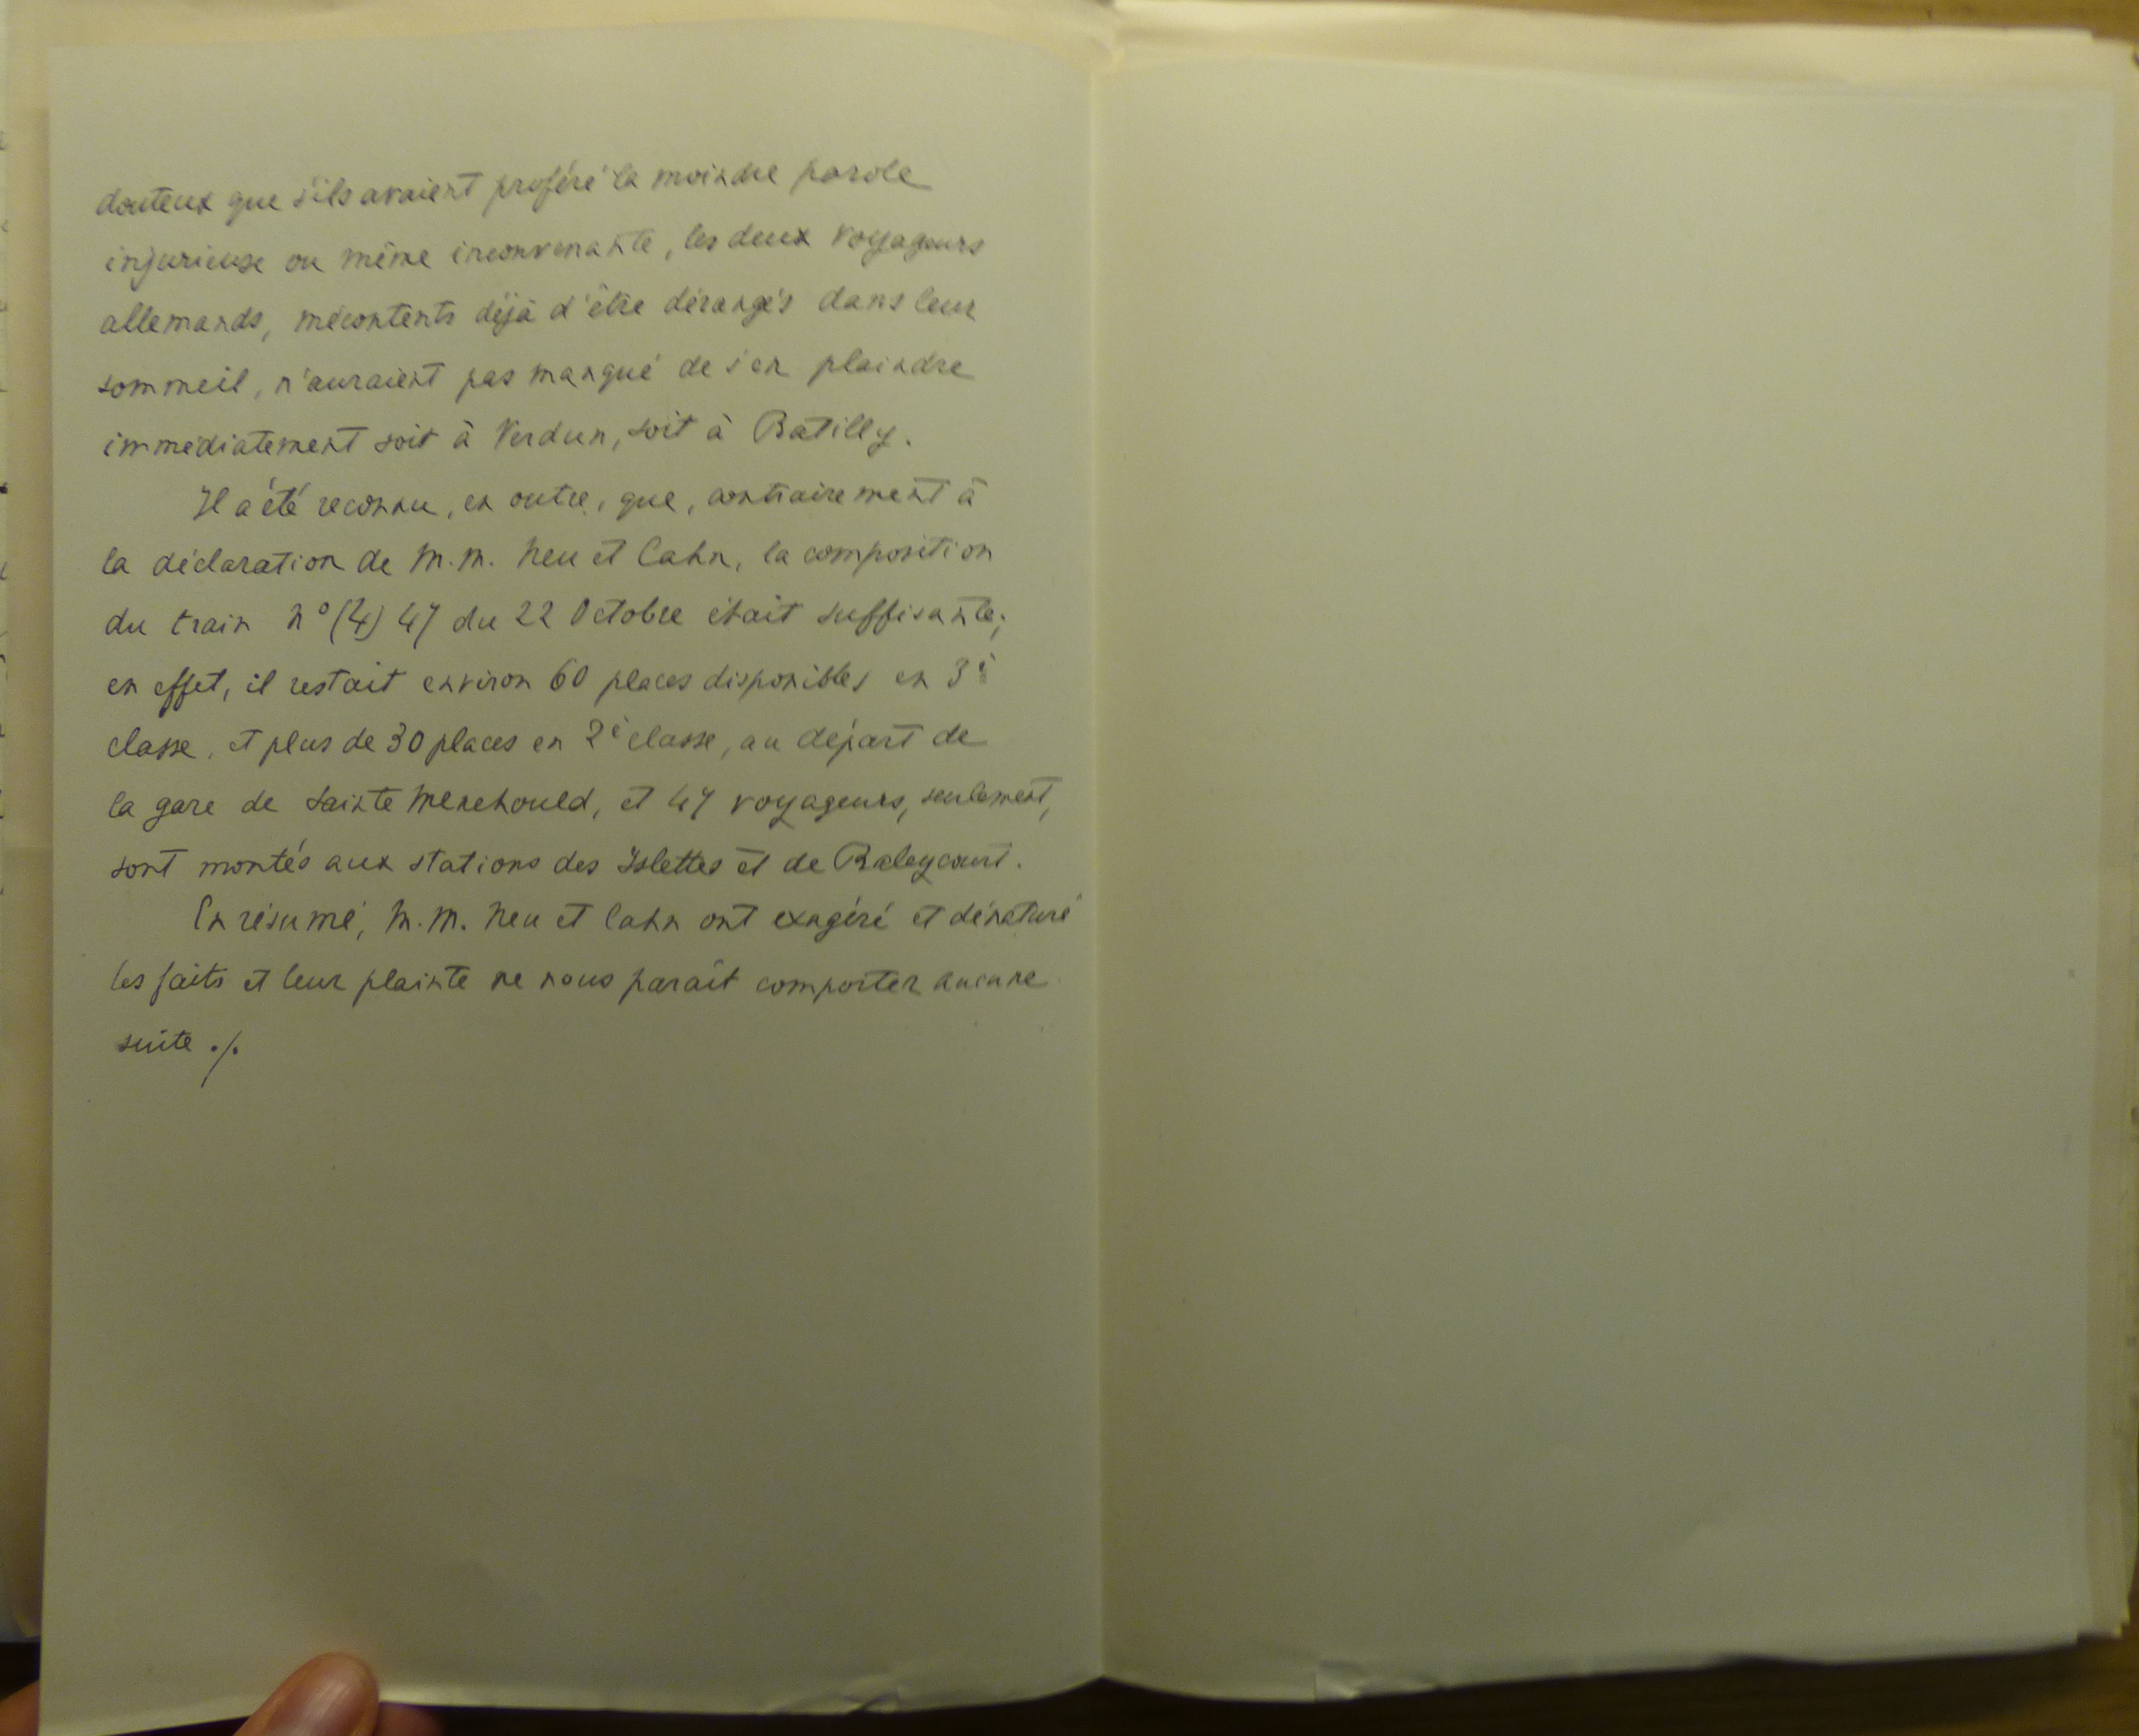 douteux que s'ils avaient proféré la moindre parole
injurieuse ou même inconvenante, les deux voyageurs
allemands, mécontents déjà d'être dérangés dans leur
sommeil, n'auraient pas manqué de s'en plaindre
immédiatement soit à Verdun, soit à Batilly.
Il a été reconnu, en outre, que, contrairement à
la déclaration de M.M. Neu et Cahn, la composition
du train n° (4) 47 du 22 Octobre était suffisante;
en effet, il restait environ 60 places disponibles en 3è
classe, et plus de 30 places en 2è classe, au départ de
la gare de Sainte Menehould, et 47 voyageurs, seulement,
sont montés aux stations des Islettes et de Baleycourt.
En résumé, M.M. Neu et Cahn ont exagéré et dénaturé
les faits et leur plainte ne nous paraît comporter aucune
suite ./.